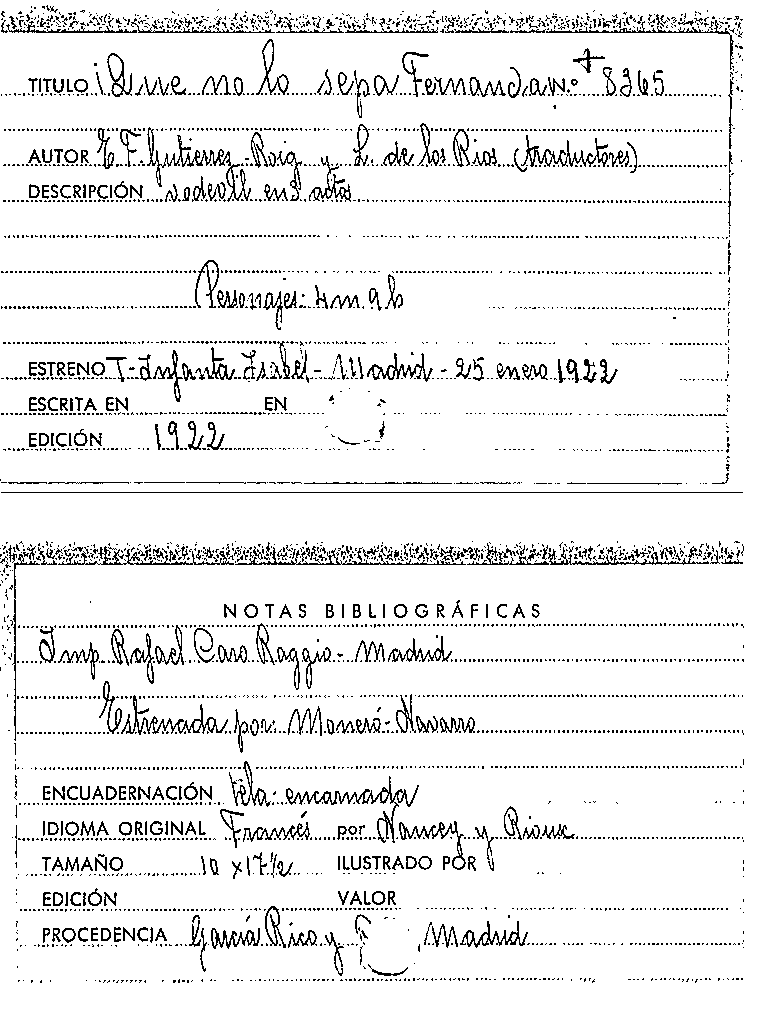 TITULO ¡Que no lo sepa Fernanda N.º 8365
AUTOR E. F. Gutierrez-Roig y L. de los Rios (traductores)
DESCRIPCIÓN vodevil en 3 actos
Personajes: 4 m 9 h
ESTRENO T-Infanta Isabel - Madrid - 25 enero 1922
ESCRITA EN EN
EDICIÓN 1922
NOTAS BIBLIOGRÁFICAS
Imp. Rafael Caro Raggio - Madrid
Estrenada por: Navarro
ENCUADERNACIÓN tela: encarnada
IDIOMA ORIGINAL Francés por Nancey y Rioux
TAMAÑO 10 x 17½ ILUSTRADO POR
EDICIÓN VALOR
PROCEDENCIA García Rico y Madrid